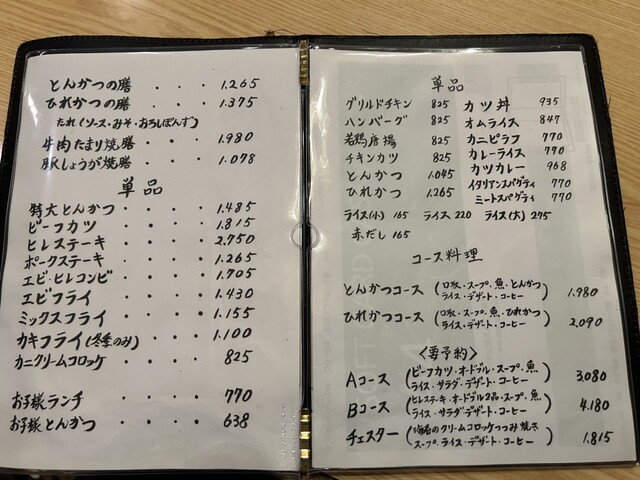 とんかつの膳 ・・・ 1.265
ひれかつの膳 ・・・ 1.375
たれ(ソース・みそ・おろしぽんず)
牛肉たまり焼膳・・ 1.980
豚しょうが焼膳・・ 1.078
単品
特大とんかつ・・・・ 1.485
ビーフカツ・・・・ 1.815
ヒレステーキ・・・・ 2.750
ポークステーキ・・・ 1.265
エビ・ヒレコンビ・・・ 1.705
エビフライ・・・・ 1.430
ミックスフライ・・・ 1.155
カキフライ(冬季のみ)・・ 1.100
カニクリームコロッケ・・ 825
お子様ランチ・・・ 770
お子様とんかつ・・・ 638
単品
グリルドチキン 825 カツ丼 935
ハンバーグ 825 オムライス 847
若鶏唐揚 825 カニピラフ 770
チキンカツ 825 カレーライス 770
とんかつ 1.045 カツカレー 968
ひれかつ 1.265 イタリアンスパゲティ 770
ミートスパゲティ 770
ライス(小) 165 ライス 220 ライス(大) 275
赤だし 165
コース料理
とんかつコース (口取・スープ・魚・とんかつ ライス・デザート・コーヒー) 1.980
ひれかつコース (口取・スープ・魚・ひれかつ ライス・デザート・コーヒー) 2.090
〈要予約〉
Aコース (ビーフカツ・オードブル・スープ・魚 ライス・サラダ・デザート・コーヒー) 3.080
Bコース (ヒレステーキ・オードブル2品・スープ・魚 ライス・サラダ・デザート・コーヒー) 4.180
チェスター (海老のクリームコロッケつつみ焼き スープ・ライス・デザート・コーヒー) 1.815